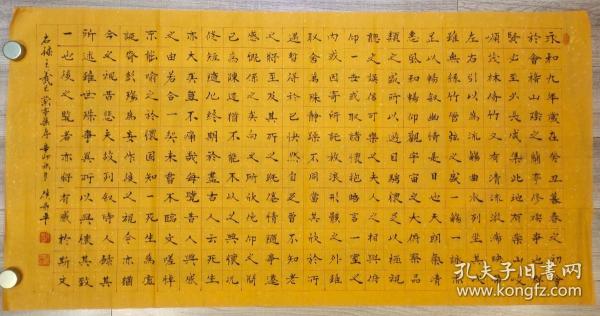 永和九年歲在癸丑暮春之初會
於會稽山陰之蘭亭修禊事也羣
賢畢至少長咸集此地有崇山峻
領茂林修竹又有清流激湍映帶
左右引以為流觴曲水列坐其次
雖無絲竹管弦之盛一觴一詠亦
足以暢敘幽情是日也天朗氣清
惠風和暢仰觀宇宙之大俯察品
類之盛所以遊目騁懷足以極視
聽之娛信可樂也夫人之相與俯
仰一世或取諸懷抱晤言一室之
內或因寄所託放浪形骸之外雖
趣舍萬殊靜躁不同當其欣於所
遇暫得於己快然自足曾不知老
之將至及其所之既倦情隨事遷
感慨係之矣向之所欣俛仰之間
已為陳迹猶不能不以之興懷況
脩短隨化終期於盡古人云死生
亦大矣豈不痛哉每覽昔人興感
之由若合一契未嘗不臨文嗟悼
不能喻之於懷固知一死生為虛
誕齊彭殤為妄作後之視今亦猶
今之視昔悲夫故列敘時人錄其
所述雖世殊事異所以興懷其致
一也後之覽者亦將有感於斯文
右錄王羲之蘭亭集序辛卯
孔夫子旧书网
www.kongfz.com